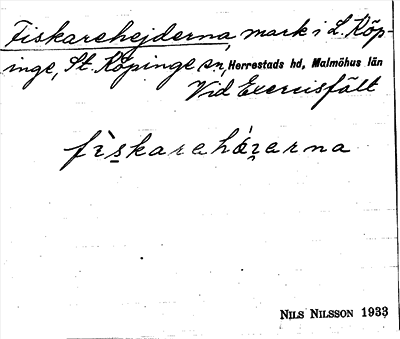 Fiskarehejderna, mark i L. Köp-
inge, St. Köpinge sn, Herrestads hd, Malmöhus län
Vid Exercisfält
fìskarehá̱i̯erna
NILS NILSSON 1933